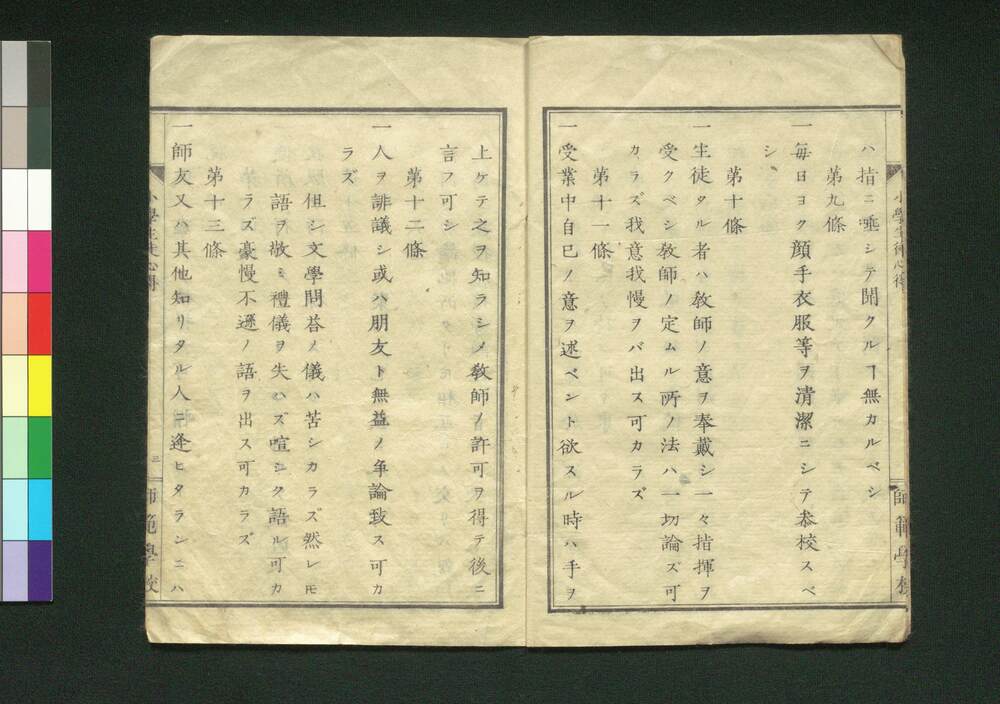 ハ指ニ唾シテ開クルヿ無カルベシ
第九條
一毎日ヨク顔手衣服等ヲ清潔ニシテ參校スベ
シ
第十條
一生徒タル者ハ教師ノ意ヲ奉戴シ一々指揮ヲ
受クベシ教師ノ定ムル所ノ法ハ一切論ズ可
カラズ我意我慢ヲバ出ス可カラズ
第十一條
一受業中自己ノ意ヲ述ベント欲スル時ハ手ヲ
小學生徒心得
師範學校
上ゲテ之ヲ知ラシメ教師ノ許可ヲ得テ後ニ
言フ可シ
第十二條
一人ヲ誹議シ或ハ朋友ト無益ノ爭論致ス可カ
ラズ
但シ文學問荅ノ儀ハ苦シカラズ然レ𪜈
語ヲ敬ミ禮儀ヲ失ハズ喧シク語ル可カ
ラズ豪慢不遜ノ語ヲ出ス可カラズ
第十三條
一師友又ハ其他知リタル人ニ逢ヒタランニハ
小學生徒心得
三
師範學校